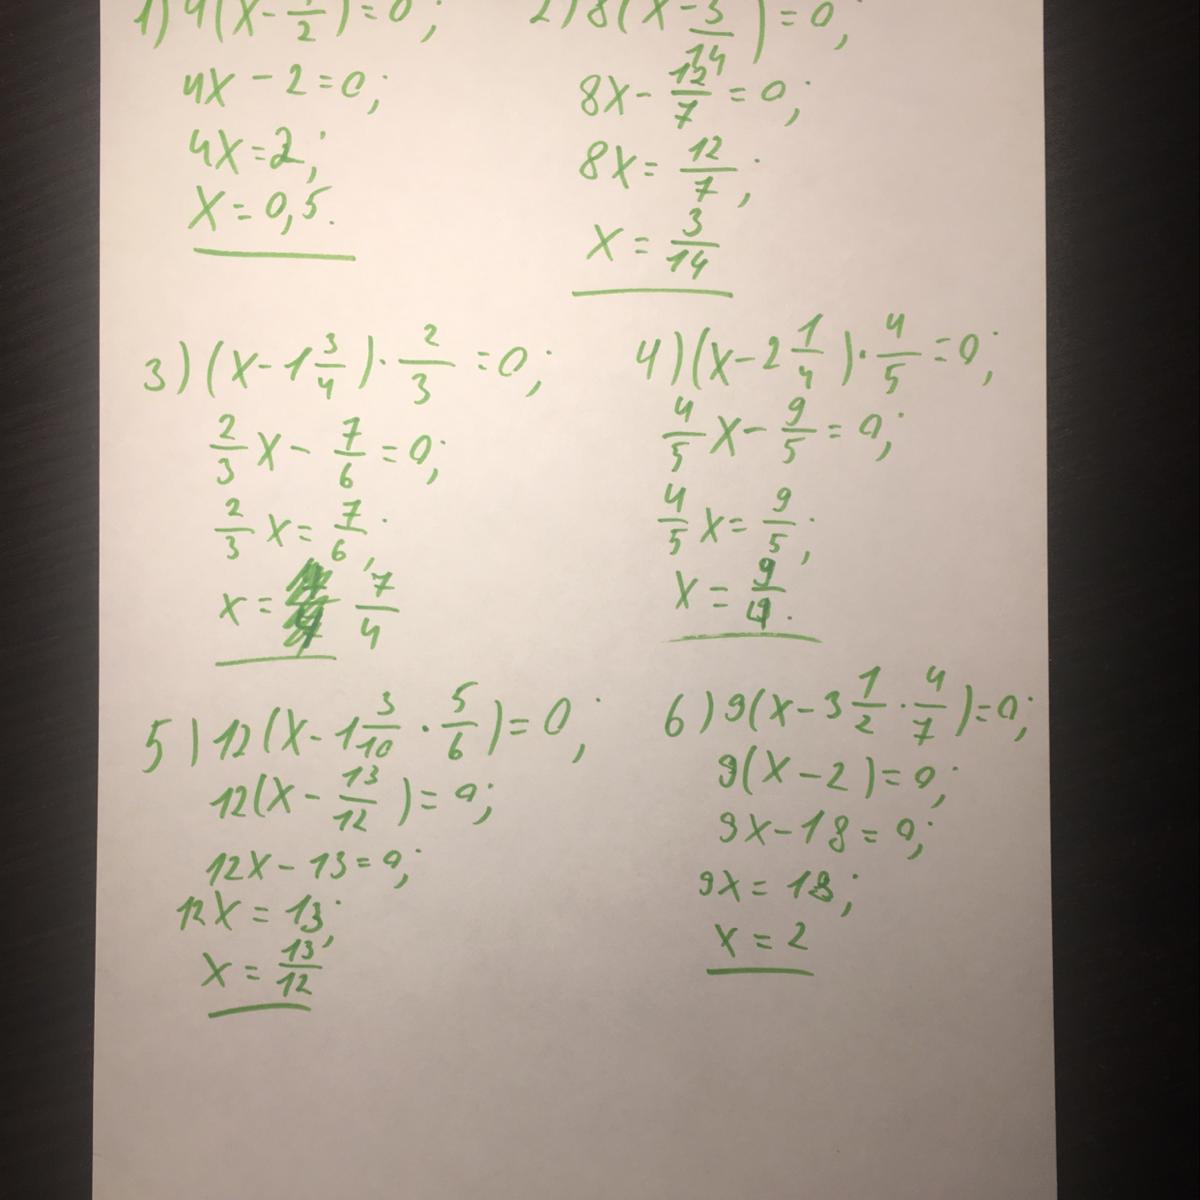 1) 4(x - 1/2) = 0;
4x - 2 = 0;
4x = 2;
x = 0,5.
2) 8(x - 3/14) = 0;
8x - 12/7 = 0;
8x = 12/7;
x = 3/14
3) (x - 1 3/4) · 2/3 = 0;
2/3 x - 7/6 = 0;
2/3 x = 7/6;
x = 7/4
4) (x - 2 1/4) · 4/5 = 0;
4/5 x - 9/5 = 0;
4/5 x = 9/5;
x = 9/4.
5) 12(x - 1 3/10 · 5/6) = 0;
12(x - 13/12) = 0;
12x - 13 = 0;
12x = 13;
x = 13/12
6) 9(x - 3 1/2 · 4/7) = 0;
9(x - 2) = 0;
9x - 18 = 0;
9x = 18;
x = 2